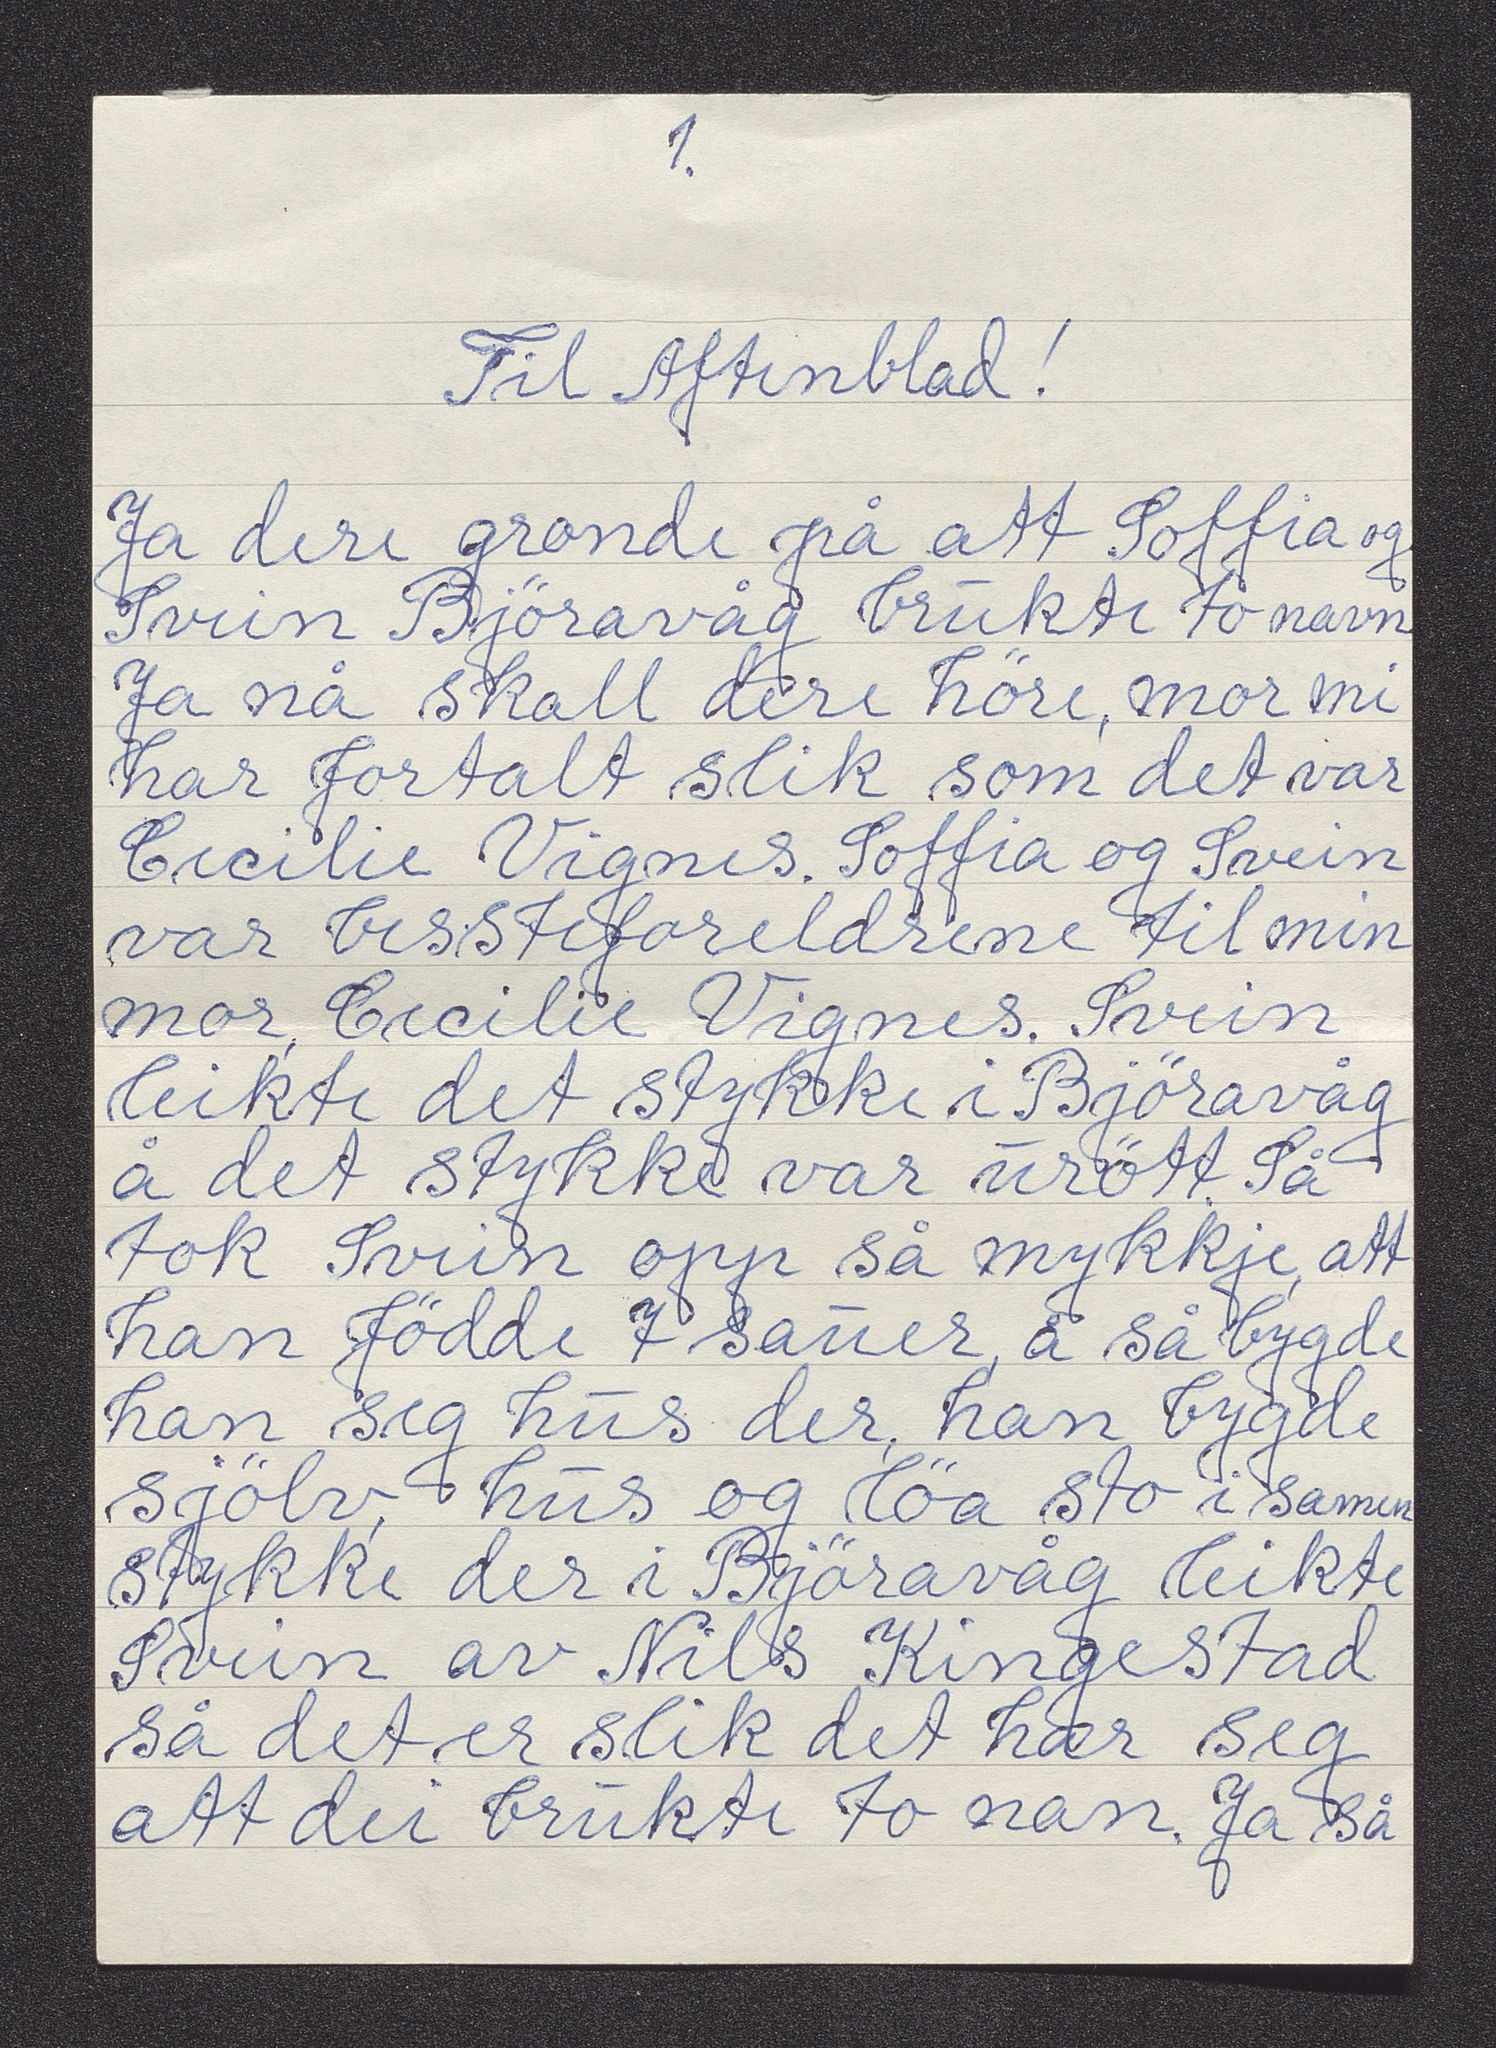 1.
Til Aftenblad!
Ja dere gronde på att Soffia og
Svein Björavåg brukte to navn
Ja nå skall dere höre, mor mi
har fortalt slik som det var
Cecilie Vignes. Soffia og Svein
var bessteforeldrene til min
mor, Cecilie Vignes. Svein
leikte det stykke i Björavåg
å det stykke var urött. Så
tok Svein opp så mykkje, att
han födde 7 sauer, å så bygde
han seg hus der, han bygde
sjölv, hus og löa sto i samen
stykke der i Björavåg leikte
Svein av Nils Kingestad
så det er slik det har seg
att dei brukte to nan. Ja så